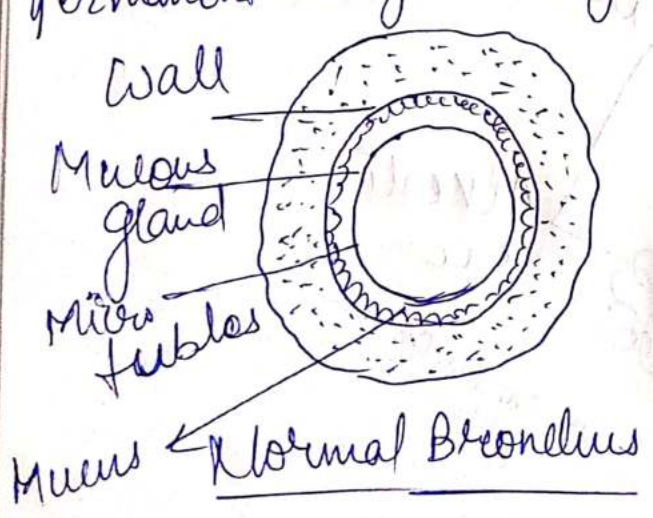 Wall
Mucous
gland
Micro
tubles
Mucus
Normal Bronchus